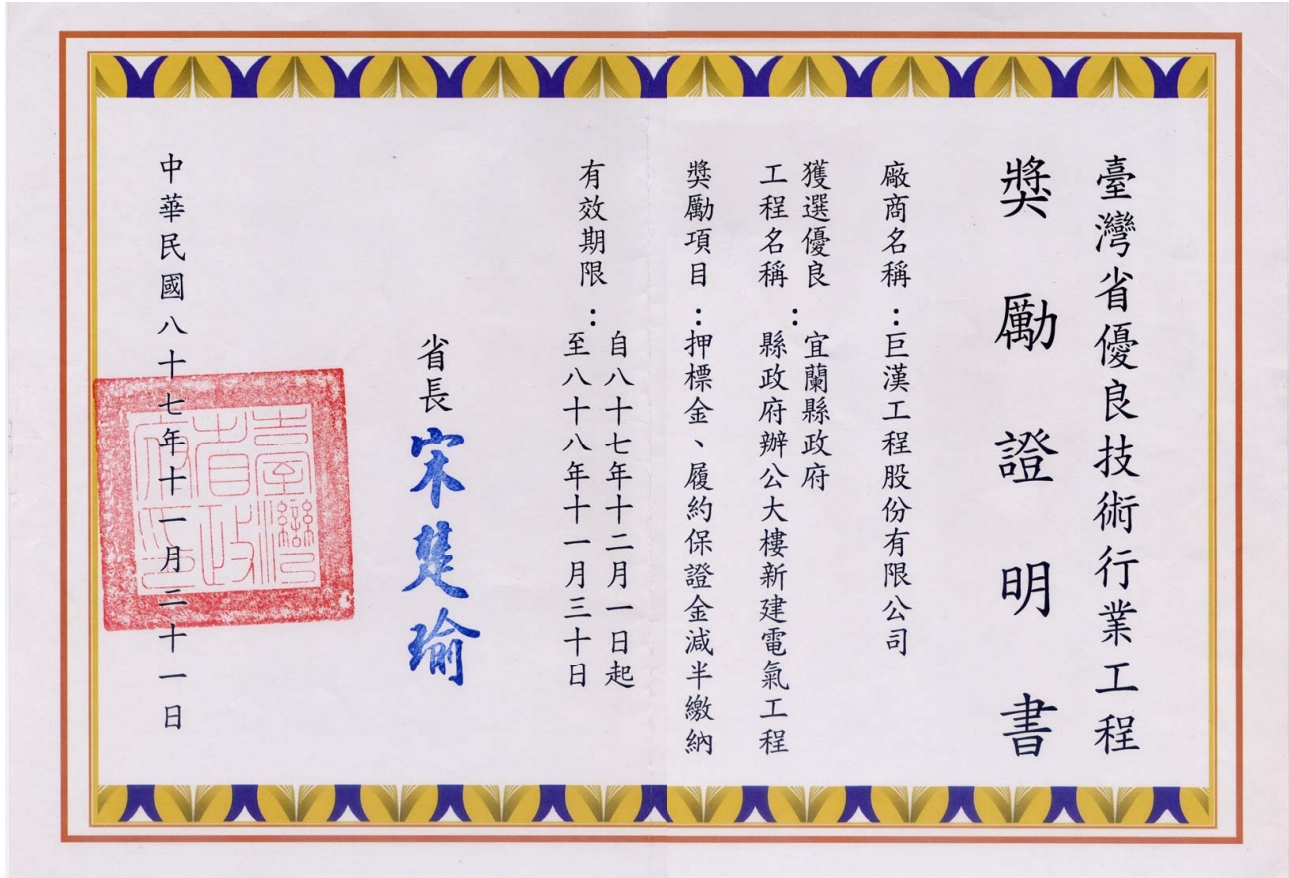 臺灣省優良技術行業工程
獎勵證明書
廠商名稱：巨漢工程股份有限公司
獲選優良
工程名稱：宜蘭縣政府
縣政府辦公大樓新建電氣工程
獎勵項目：押標金、履約保證金減半繳納
有效期限：自八十七年十二月一日起
至八十八年十一月三十日
省長 宋楚瑜
臺灣省政府印
中華民國八十七年十一月二十一日